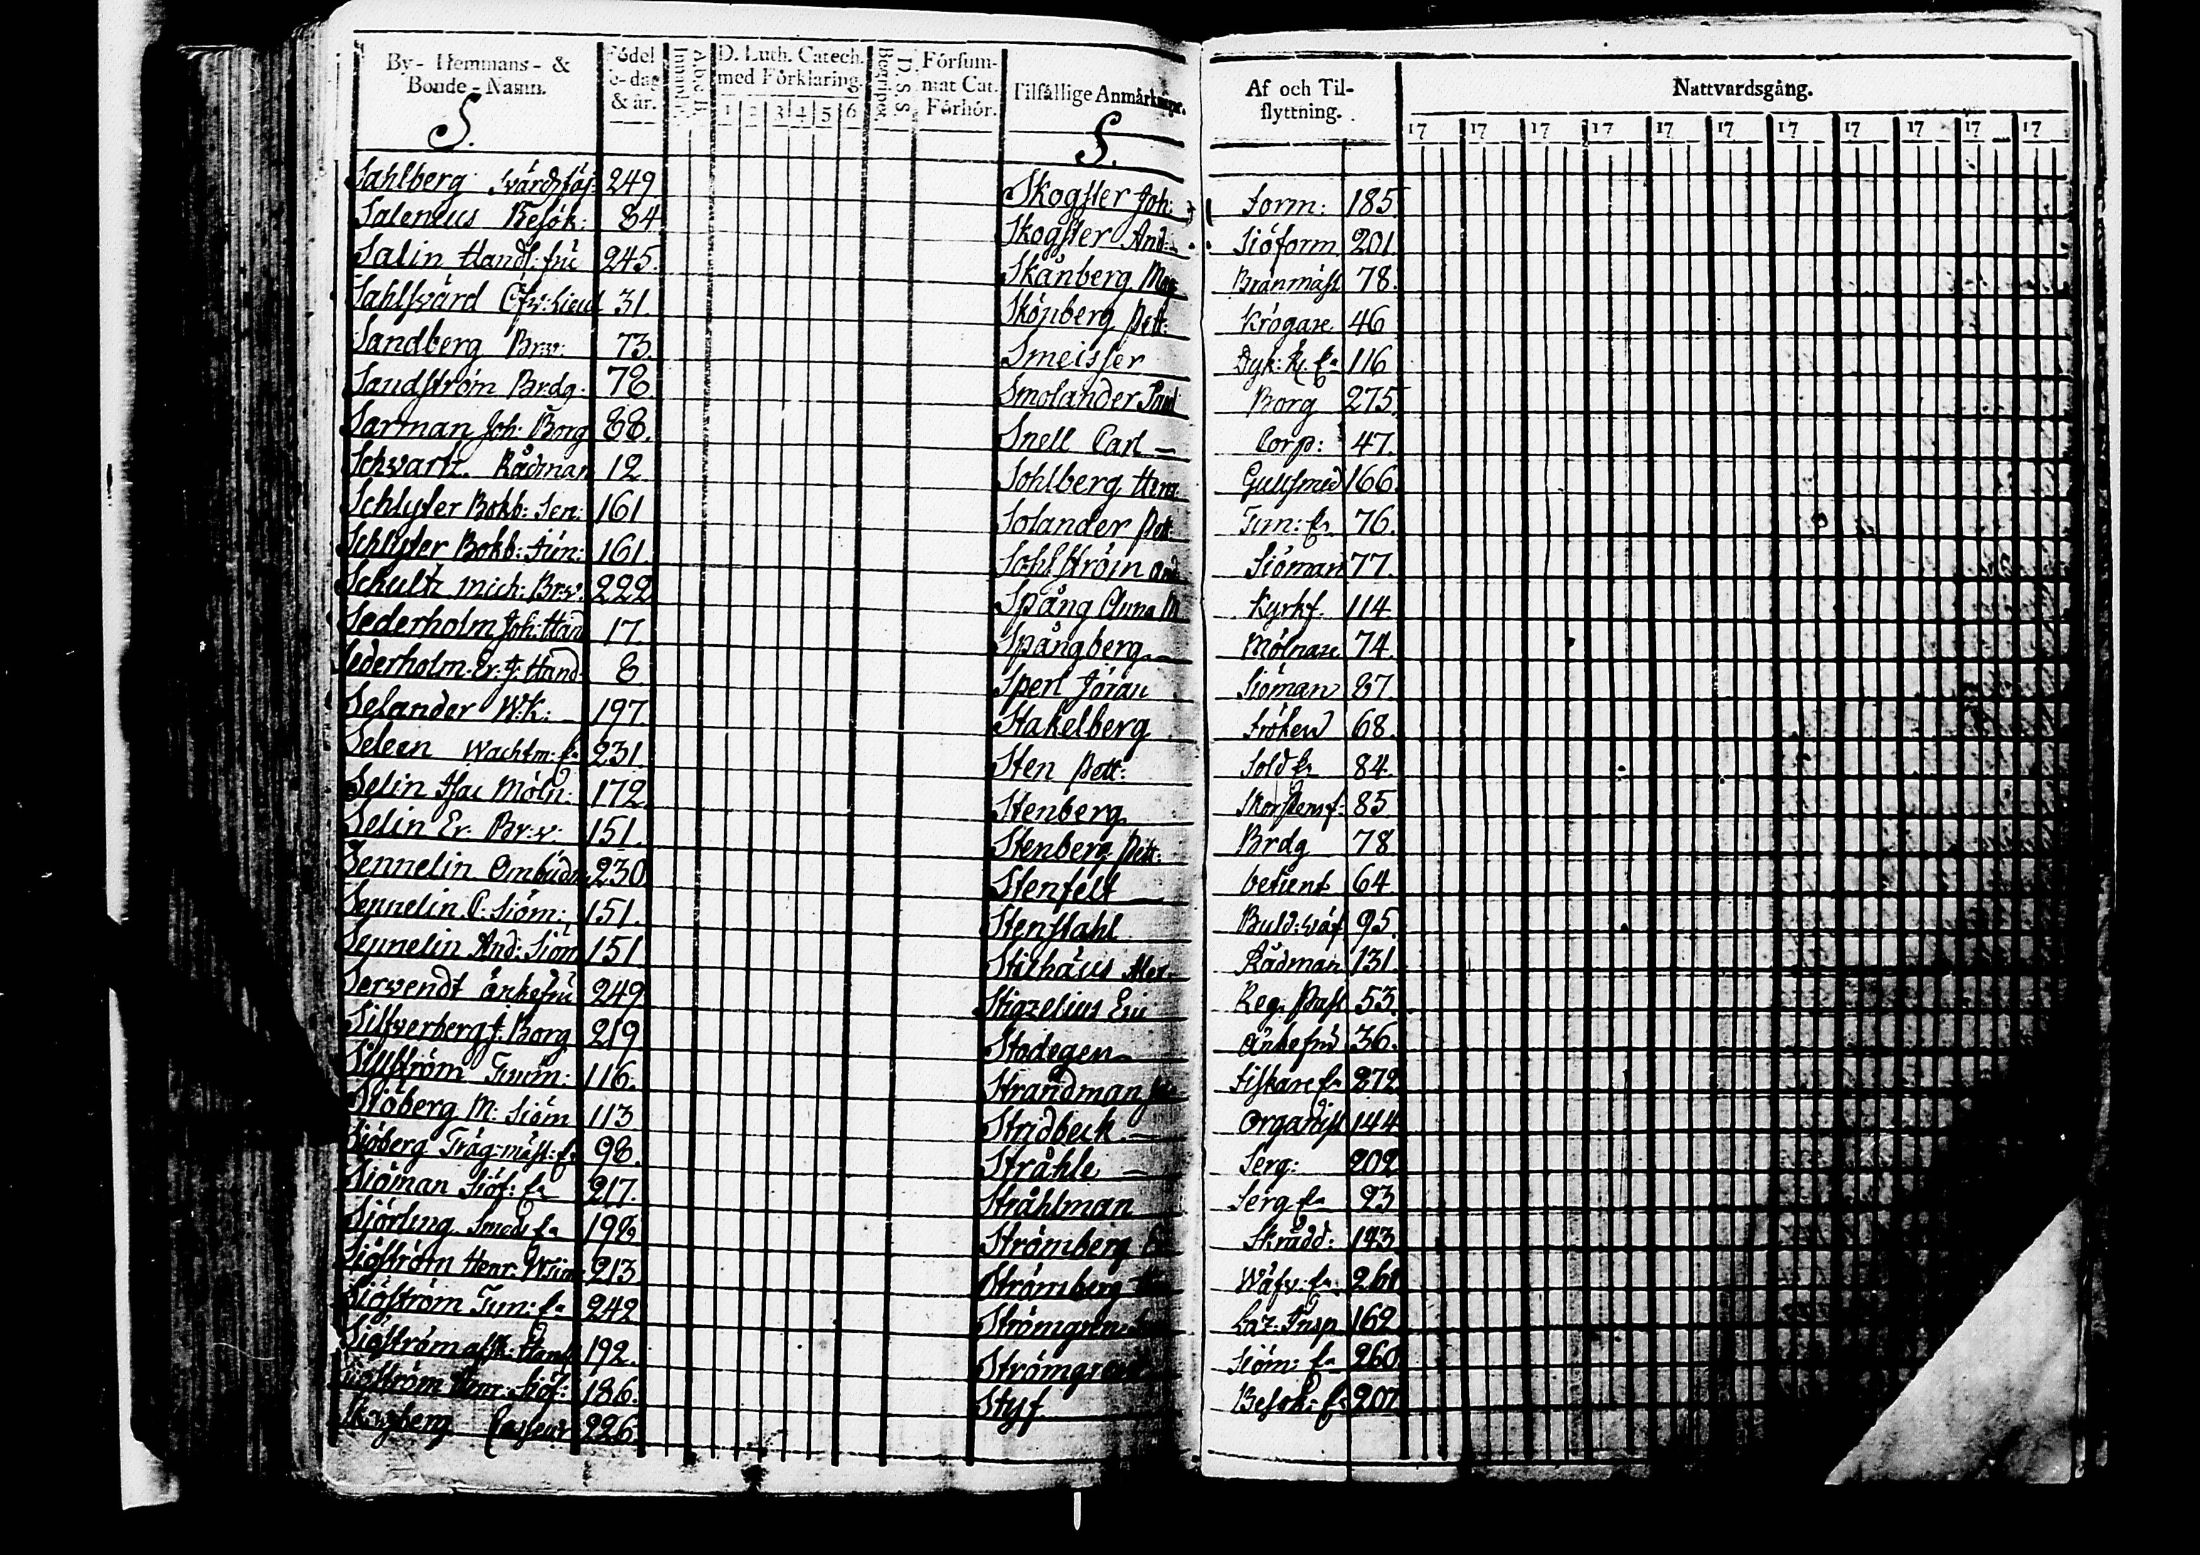 By- Hemmans- &
Bonde-Namn.
Födel
se-dag
& år.
Innant.
A.b.c. B.
D. Luth. Catech.
med Förklaring.
1 2 3 4 5 6
Begripet.
D. S. S.
Försum-
mat Cat.
Förhör.
Tilfällige Anmärkningar.
S.
S.
Sahlberg Svärdsfäj: 249
Salenius Besök: 84
Salin Handl: fru 245.
Sahlsvärd Öfv: Lieut 31.
Sandberg Br:v: 73.
Sandström Brdg. 78.
Sarman Joh: Borg 88.
Schvartz. Rådman 12.
Schlyter Bokb: Sen: 161
Schlyter Bokb: Jun: 161.
Schultz Mich: Br:v. 222
Sederholm Joh: Hand 17.
Sederholm. Er: J: Hand 8.
Selander W:K: 197.
Seleen Wachtm: E. 231.
Selin Isac Möln: 172.
Selin Er: Br:v: 151.
Sennelin Ombudm 230
Sennelin C: Siöm: 151.
Sennelin And: Siöm 151.
Servendt änkefru 249
Silfverberg J: Borg 219
Sillström Timm: 116.
Siöberg M: Siöm 113
Siöberg Träg:mäst: E. 98.
Siöman Siöf: E. 217.
Siörling Smeds E. 198
Siöström Henr: 213
Siöström Tim: E. 242
Siöström Handl 192.
Siöström Henr: Siöf: 186.
Skogberg 226
Skogster Joh:
Skogster And:
Skånberg
Skönberg Pett:
Smeisser
Smolander Paul
Snell Carl
Sohlberg Henr
Solander Pett:
Sohlström And
Spång Anna M
Spångberg
Sperl Jöran
Stakelberg
Sten Pett:
Stenberg
Stenberg Pett:
Stenfelt
Stenstahl
Stichäus Alex
Stigzelius Eri
Stodegen
Strandman
Stridbeck
Stråhle
Stråhlman
Strömberg
Strömberg
Strömgren
Strömgren
Styf
Af och Til-
flyttning.
Nattvardsgång.
17 17 17 17 17 17 17 17 17 17 17
Form: 185
Siöform 201.
Branmäst 78.
Krögare 46
Dyk: K. E. 116
Borg 275.
Corp: 47.
Gulsmed 166.
Tim: E. 76.
Siöman 77.
Kyrkf. 114.
Mölnare 74.
Siöman 87.
Fröken 68.
Sold E. 84.
Skorstensf: 85
Brdg 78.
64
Buld: Wäf 95.
Rådman 131.
Reg: Past 53.
Änkefru 36.
Fiskare E. 272
Organist 144
Serg: 202
Serg E. 23
Skrädd: 143
Wäfv: E. 261
Laz: Insp 169
Siöm: E. 260
Besök: E. 207